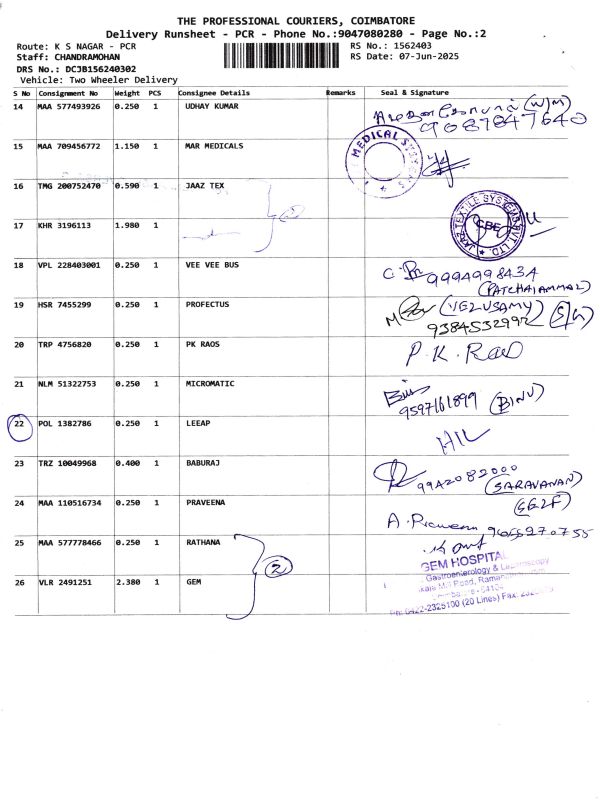 THE PROFESSIONAL COURIERS, COIMBATORE
Delivery Runsheet - PCR - Phone No.:9047080280 - Page No.:2
Route: K S NAGAR - PCR RS No.: 1562403
Staff: CHANDRAMOHAN RS Date: 07-Jun-2025
DRS No.: DCJB156240302
Vehicle: Two Wheeler Delivery
S No Consignment No Weight PCS Consignee Details Remarks Seal & Signature
14 MAA 577493926 0.250 1 UDHAY KUMAR (W/M)
9087847640
15 MAA 709456772 1.150 1 MAR MEDICALS MEDICAL
16 TMG 200752470 0.590 1 JAAZ TEX
17 KHR 3196113 1.980 1 CBE
18 VPL 228403001 0.250 1 VEE VEE BUS 9994998434
(PATCHAIAMMAL)
19 HSR 7455299 0.250 1 PROFECTUS (VELUSAMY)
20 TRP 4756820 0.250 1 PK RAOS P.K. Rao
21 NLM 51322753 0.250 1 MICROMATIC
9597161899 (BINU)
22 POL 1382786 0.250 1 LEEAP
23 TRZ 10049968 0.400 1 BABURAJ
(SARAVANAN)
(SELF)
24 MAA 110516734 0.250 1 PRAVEENA
25 MAA 577778466 0.250 1 RATHANA
2
GEM HOSPITAL
Gastroenterology &
26 VLR 2491251 2.380 1 GEM
Ph: 0422-2325100 (20 Lines) Fax: